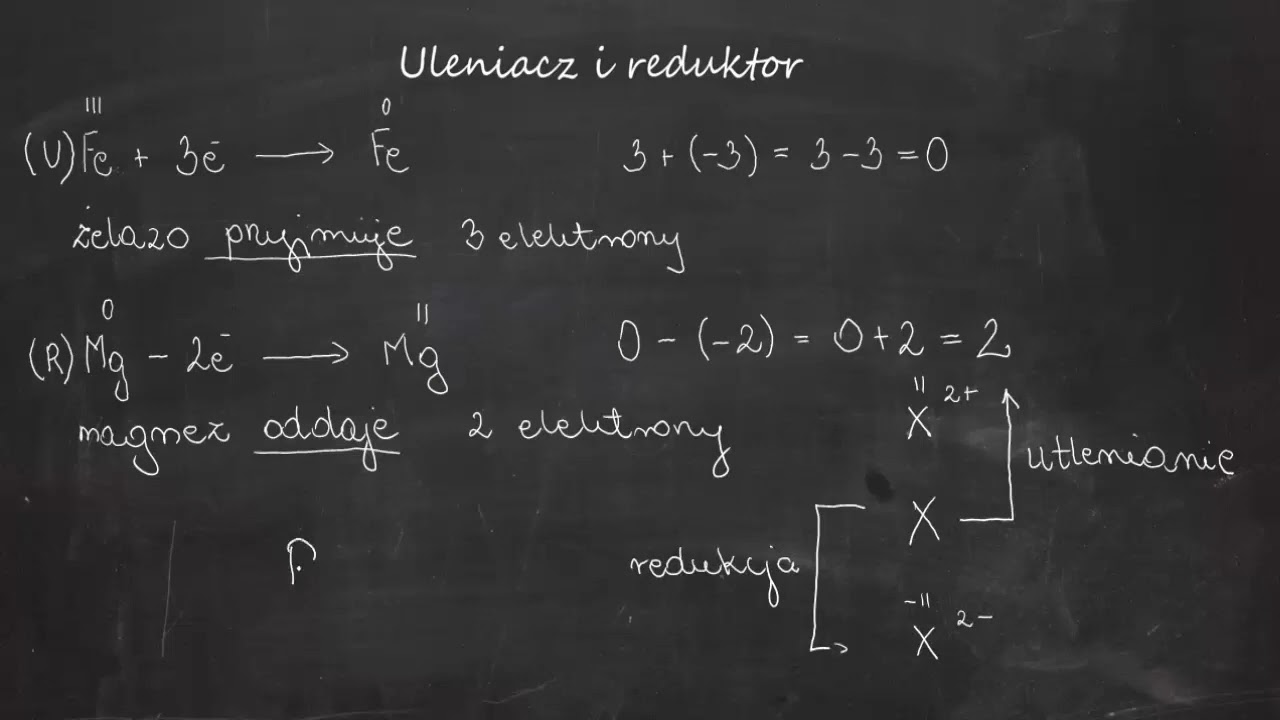 Uleniacz i reduktor
III 0
(U) Fe + 3ē ⟶ Fe 3 + (-3) = 3 - 3 = 0
żelazo pryjmuje 3 elektrony
0 II
(R) Mg - 2ē ⟶ Mg 0 - (-2) = 0 + 2 = 2
magnez oddaje 2 elektrony
II
X 2+
utlenianie
X
redukcja
-II
X 2-